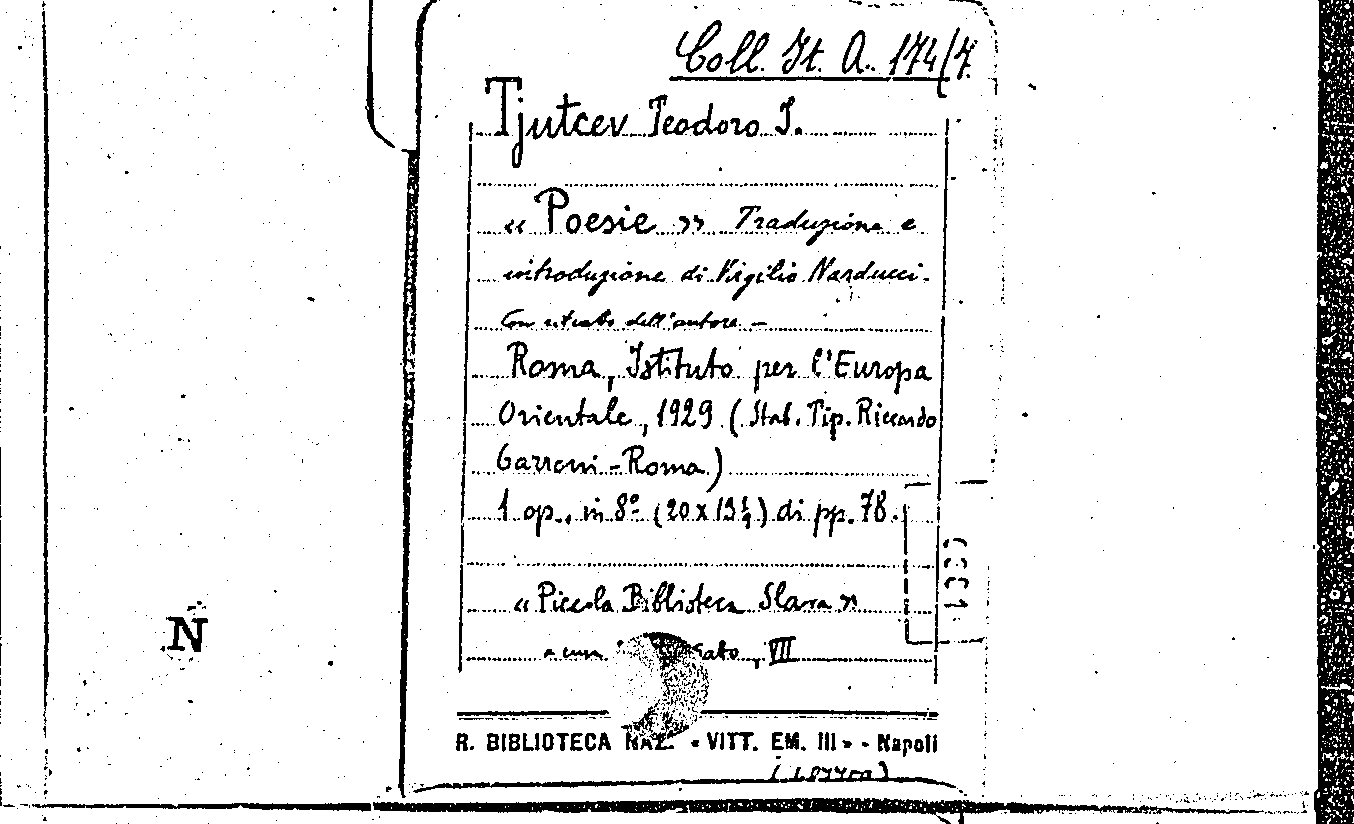 Coll. It. A. 174/7.
Tjutcev Teodoro I.
« Poesie » Traduzione e
introduzione di Virgilio Narducci.
Con ritratto dell'autore –
Roma, Istituto per l'Europa
Orientale, 1929 (Stab. Tip. Riccardo
Garroni - Roma)
1 op., in 8º (20 x 13½) di pp. 78.
« Piccola Biblioteca Slava »
a cura
, VII
N
R. BIBLIOTECA NAZ. « VITT. EM. III » - Napoli